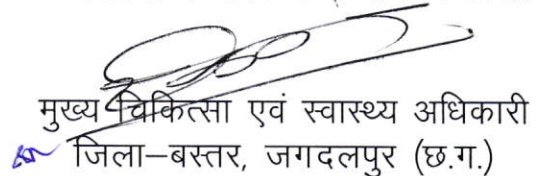 मुख्य चिकित्सा एवं स्वास्थ्य अधिकारी
जिला–बस्तर, जगदलपुर (छ.ग.)